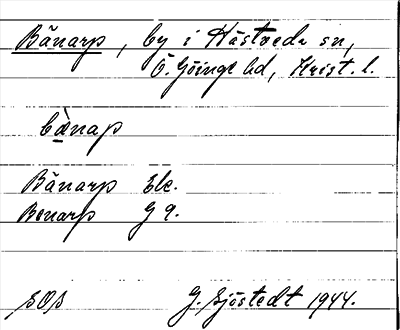 Bänarp, by i Hästveda sn,
Ö. Göinge hd, Krist. l.
bænap
Bänarp Ek.
Benarp G 9.
SOS G. Sjöstedt 1944.